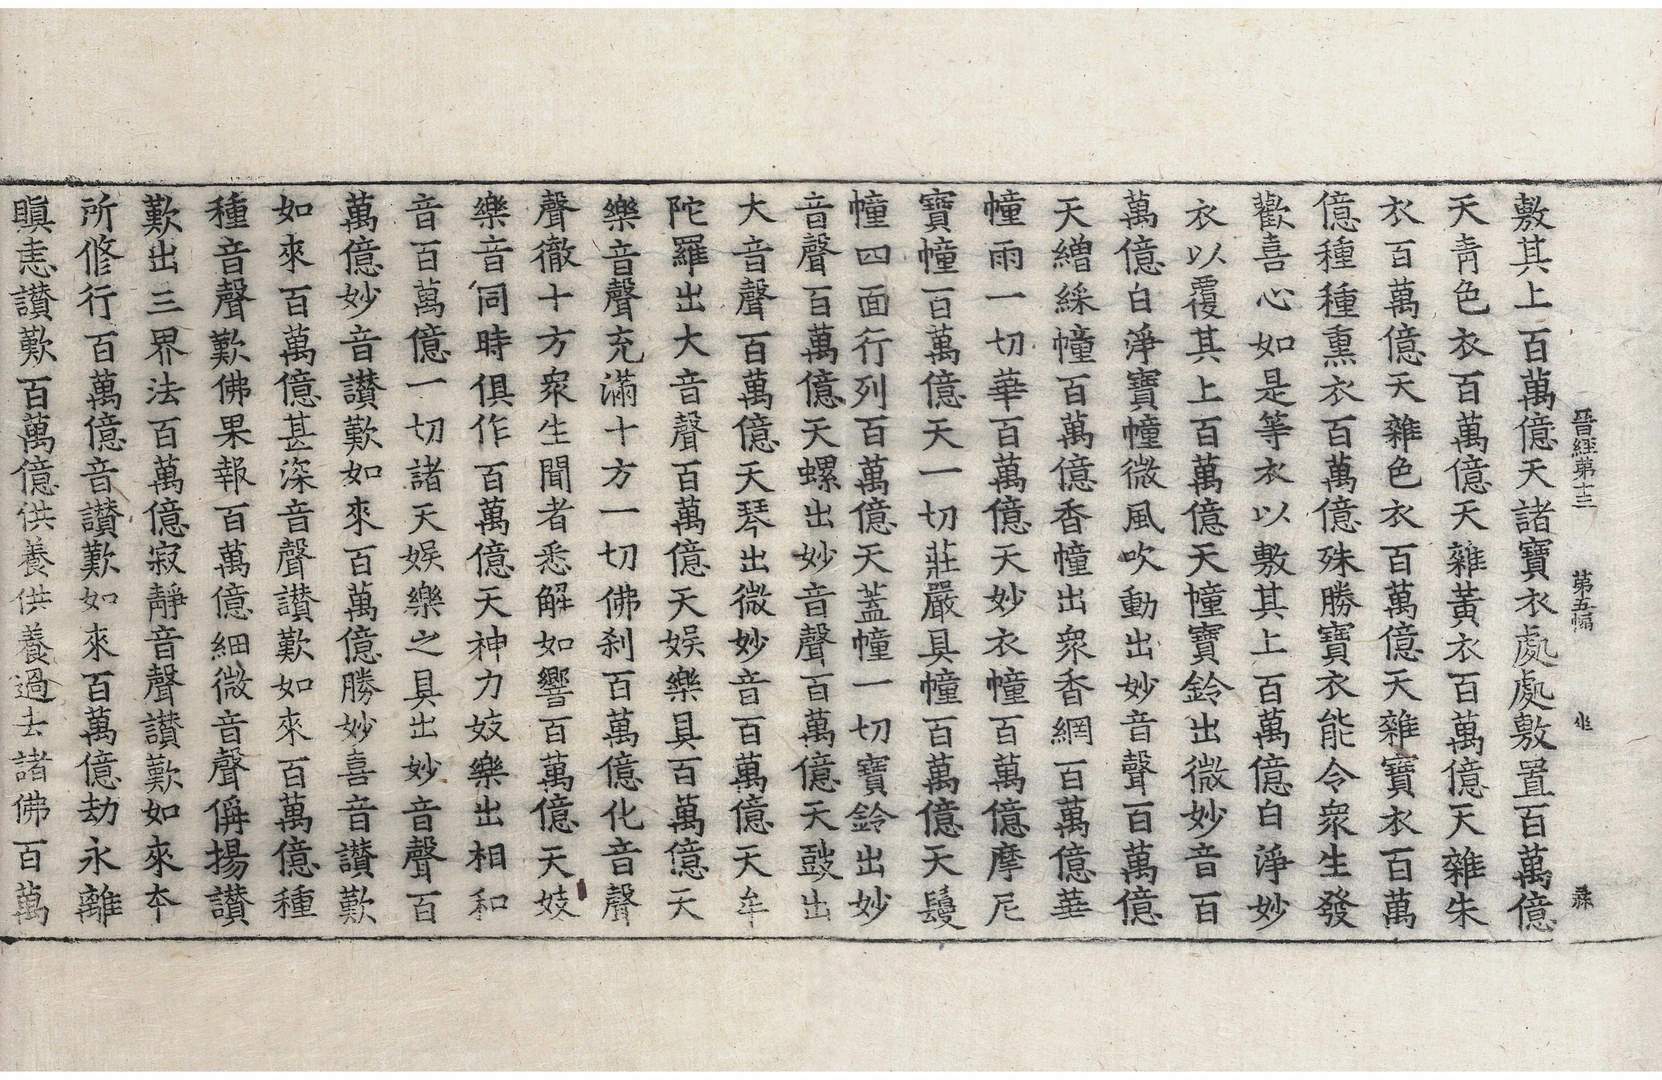 晉經第十三 第五幅 
敷其上百萬億天諸寶衣處處敷置百萬億
天青色衣百萬億天雜黃衣百萬億天雜朱
衣百萬億天雜色衣百萬億天雜寶衣百萬
億種種熏衣百萬億殊勝寶衣能令衆生發
歡喜心如是等衣以敷其上百萬億白淨妙
衣以覆其上百萬億天幢寶鈴出微妙音百
萬億白淨寶幢微風吹動出妙音聲百萬億
天繒綵幢百萬億香幢出衆香網百萬億華
幢雨一切華百萬億天妙衣幢百萬億摩尼
寶幢百萬億天一切莊嚴具幢百萬億天鬘
幢四面行列百萬億天蓋幢一切寶鈴出妙
音聲百萬億天螺出妙音聲百萬億天鼓出
大音聲百萬億天琴出微妙音百萬億天牟
陀羅出大音聲百萬億天娛樂具百萬億天
樂音聲充滿十方一切佛刹百萬億化音聲
聲徹十方衆生聞者悉解如響百萬億天妓
樂音同時俱作百萬億天神力妓樂出相和
音百萬億一切諸天娛樂之具出妙音聲百
萬億妙音讃歎如來百萬億勝妙喜音讃歎
如來百萬億甚深音聲讃歎如來百萬億種
種音聲歎佛果報百萬億細微音聲偁揚讃
歎出三界法百萬億寂靜音聲讃歎如來夲
所修行百萬億音讃歎如來百萬億劫永離
瞋恚讃歎百萬億供養供養過去諸佛百萬